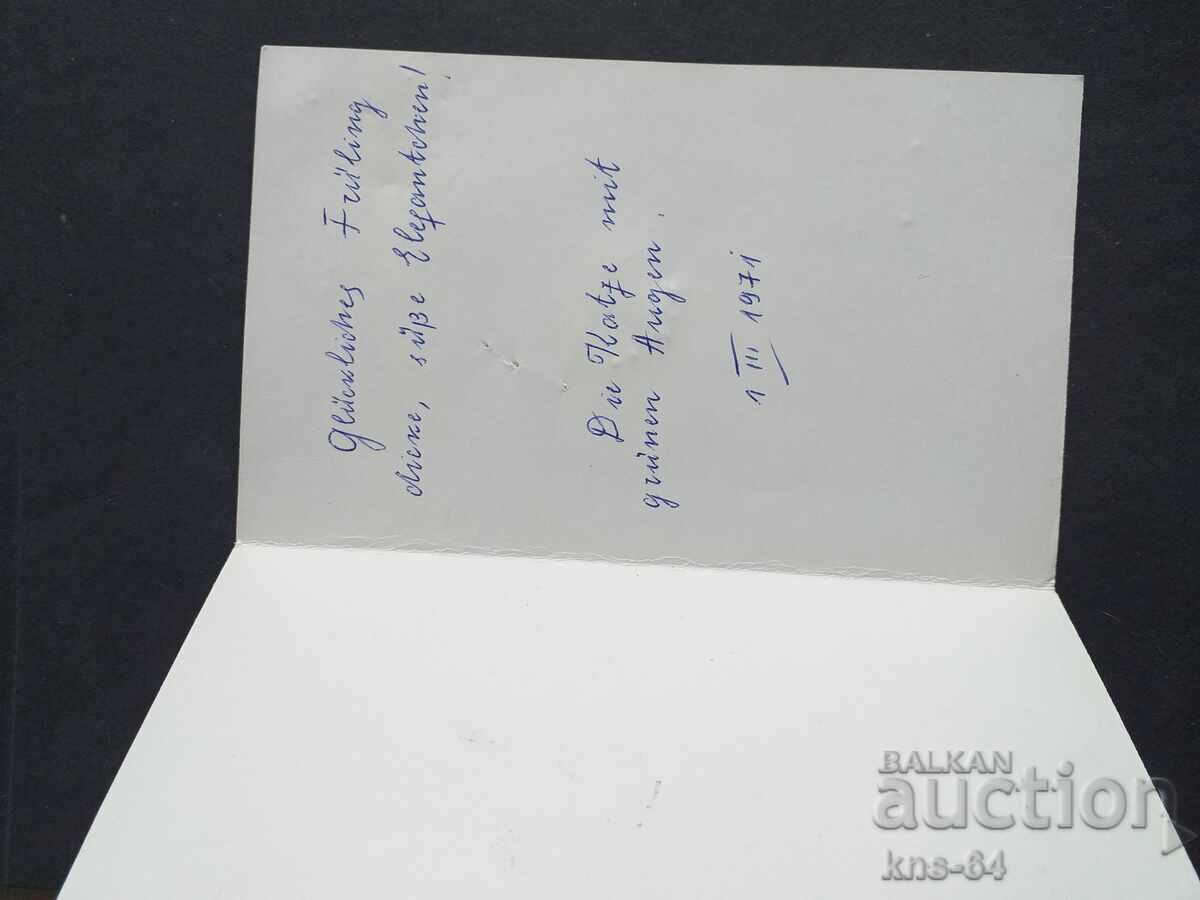 Glückliches Früling
dicke, süße Elefantchen!
Die Katze mit
grünen Augen.
1 III 1971
BALKAN
auction
kns-64